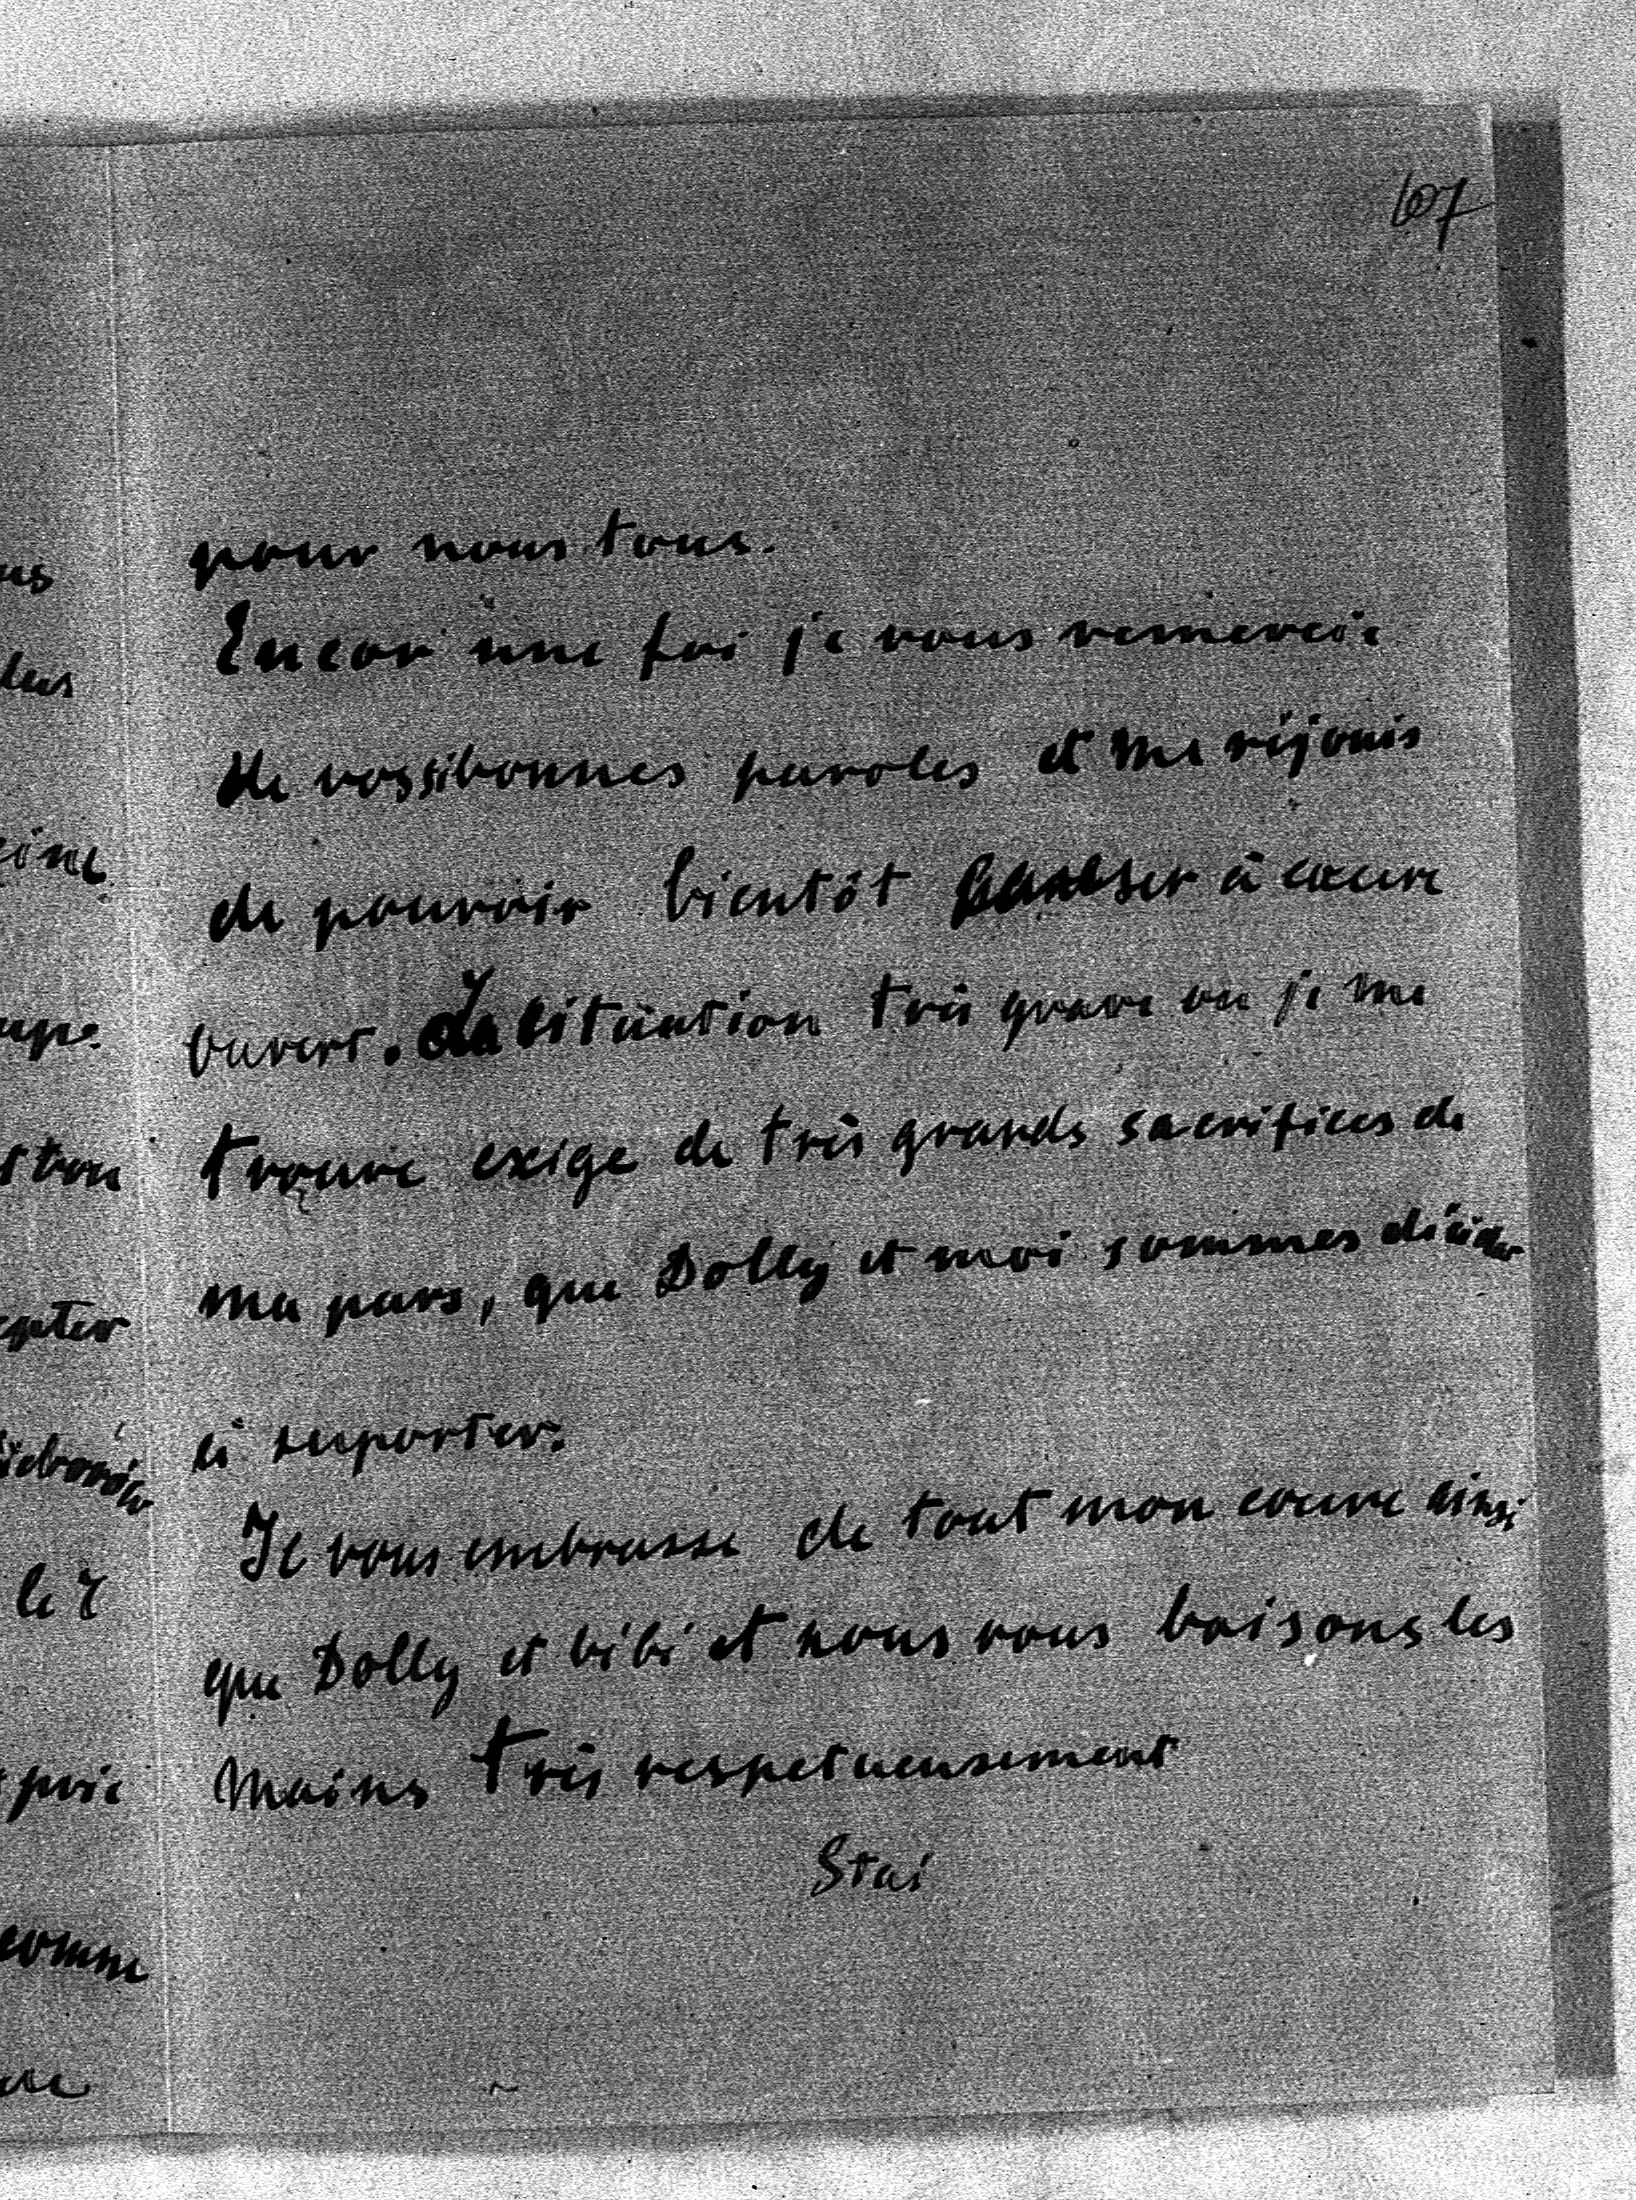 607
pour nous tous.
Encor une foi je vous remercie
de vos si bonnes paroles et me réjouis
de pouvoir bientôt causer à coeure
ouvert. La situation très grave ou je me
trouve exige de très grands sacrifices de
ma pars, que Dolly et moi sommes décider
à suporter.
Je vous embrasse de tout mon coeure ainsi
que Dolly et bibi et nous vous baisons les
mains très respetueusement
Stai
us
eine
eupe.
epter
le 7
prie
comme